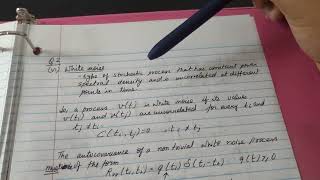 Q 2
(vi) White noise
- type of stochastic process that has constant power
spectral density and is uncorrelated at different
points in time.
So a process v(t) is white noise if its values
v(ti) and v(tj) are uncorrelated for every ti and
tj ≠ ti
C(ti, tj) = 0 , ti ≠ tj
The autocovariance of a non trivial white noise process
must be of the form
q(ti) δ(ti - t0) q(t) ≥ 0